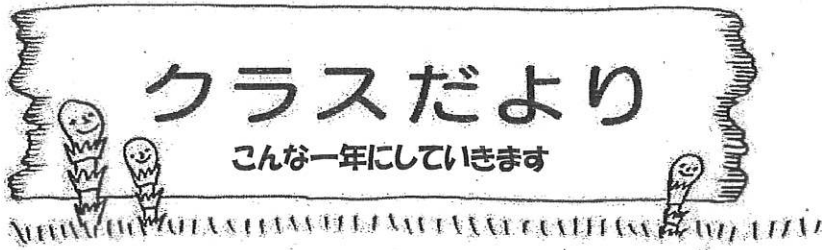 クラスだより
こんな一年にしていきます